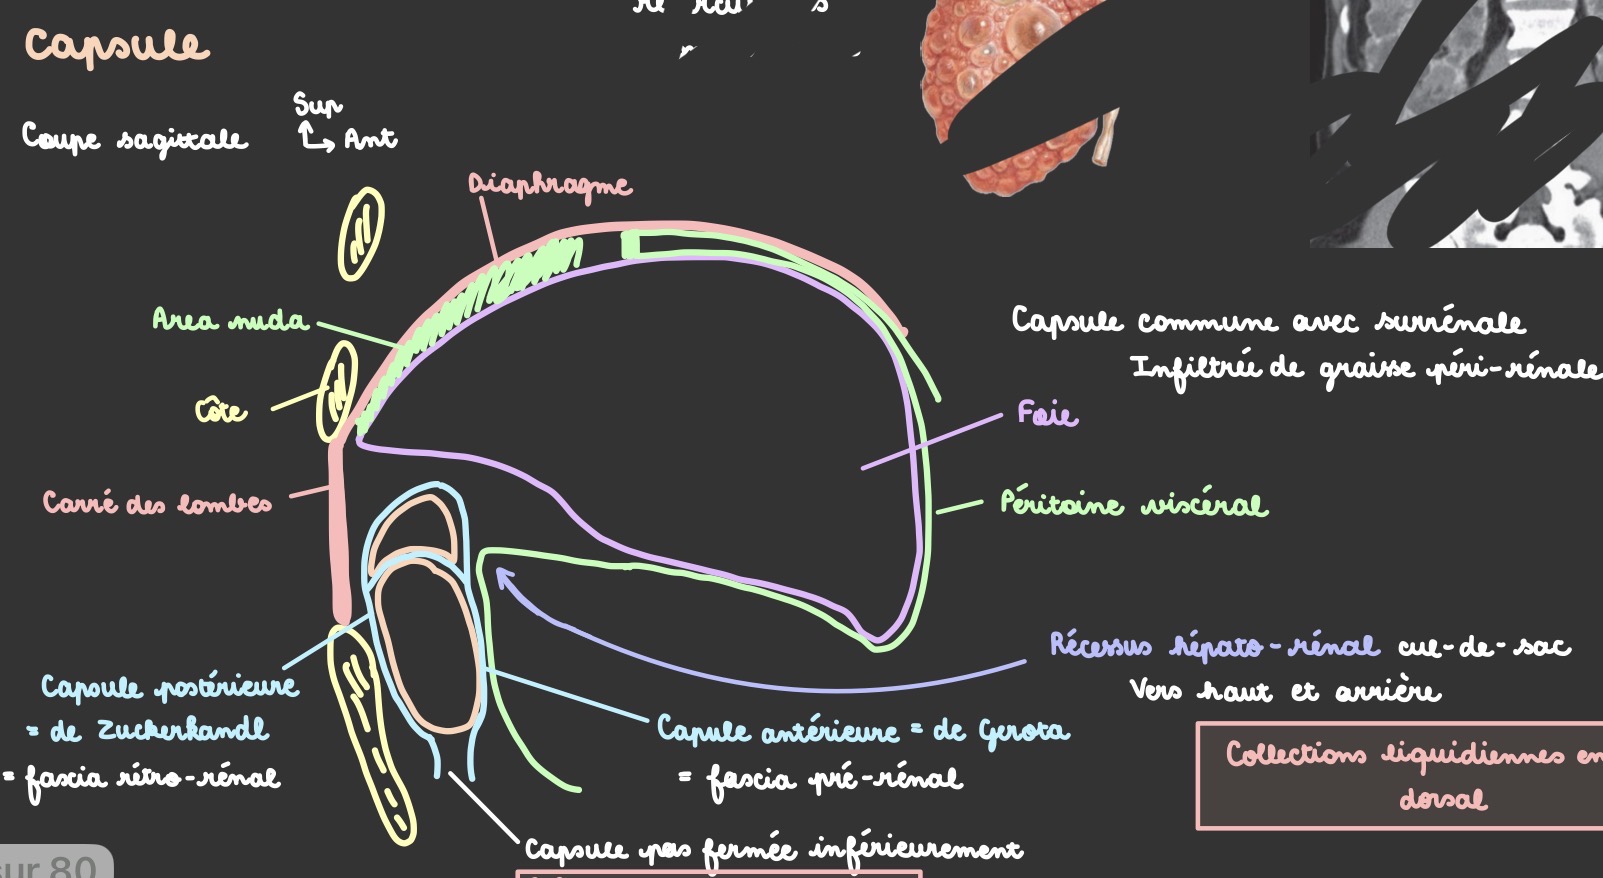 Capsule
Coupe sagittale
Sup
Ant
Diaphragme
Area nuda
Côte
Carré des lombes
Capsule commune avec surrénale
Infiltrée de graisse péri-rénale
Foie
Péritoine viscéral
Récessus hépato-rénal cul-de-sac
Vers haut et arrière
Capsule postérieure
= de Zuckerkandl
= fascia rétro-rénal
Capule antérieure = de Gerota
= fascia pré-rénal
Collections liquidiennes en
dorsal
Capsule pas fermée inférieurement
sur 80